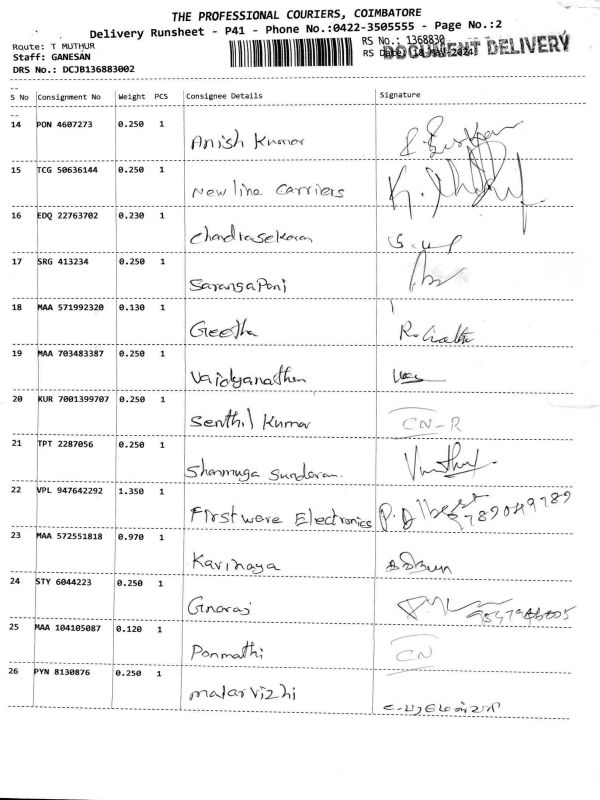 THE PROFESSIONAL COURIERS, COIMBATORE
Delivery Runsheet - P41 - Phone No.:0422-3505555 - Page No.:2
Route: T MUTHUR
RS No.: 1368830
Staff: GANESAN
RS Date: 18-MAY-2024
DOCUMENT DELIVERY
DRS No.: DCJB136883002
S No Consignment No Weight PCS Consignee Details Signature
14 PON 4607273 0.250 1 Anish Kumar
15 TCG 50636144 0.250 1 New line Carriers
16 EDQ 22763702 0.230 1 Chandrasekaran
17 SRG 413234 0.250 1 SarangaPani
18 MAA 571992320 0.130 1 Geetha
19 MAA 703483387 0.250 1 Vaidyanathan
20 KUR 7001399707 0.250 1 Senthil Kumar CN-R
21 TPT 2287056 0.250 1 Shanmuga Sundaram.
22 VPL 947642292 1.350 1 Firstwave Electronics
23 MAA 572551818 0.970 1 Kavinaya
24 STY 6044223 0.250 1
25 MAA 104105087 0.120 1 Ponmathi CN
26 PYN 8130876 0.250 1 malarvizhi